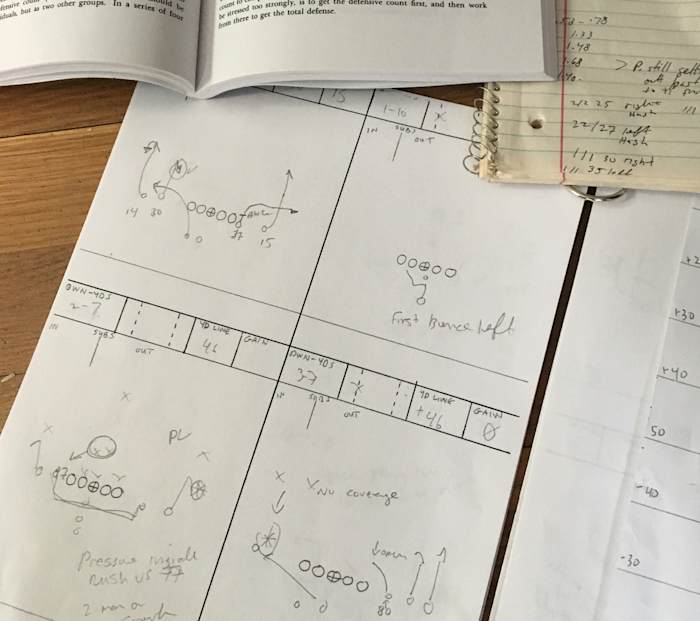 In a series of four
iduals, but as two other groups.
is to get the defensive count first, and then work
be stressed too strongly,
from there to get the total defense.
1.33
1.48
1.68
> P. still
out past
2/2 25 right
Hash
22/27 left
Hash
111 30 right
111 35 left
15
1-10
X
IN
SUBS
OUT
14 30
77
15
First Bounce Left
OWN-40S
2-7
YD LINE
46
GAIN
IN
SUBS
OUT
OWN-40S
3-7
X
YD LINE
+46
GAIN
0
IN
SUBS
OUT
X
X
PL
X
X
77
X
No coverage
Down
86
Pressure inside
Rush vs 77
2 man or
+30
+40
50
-40
-30